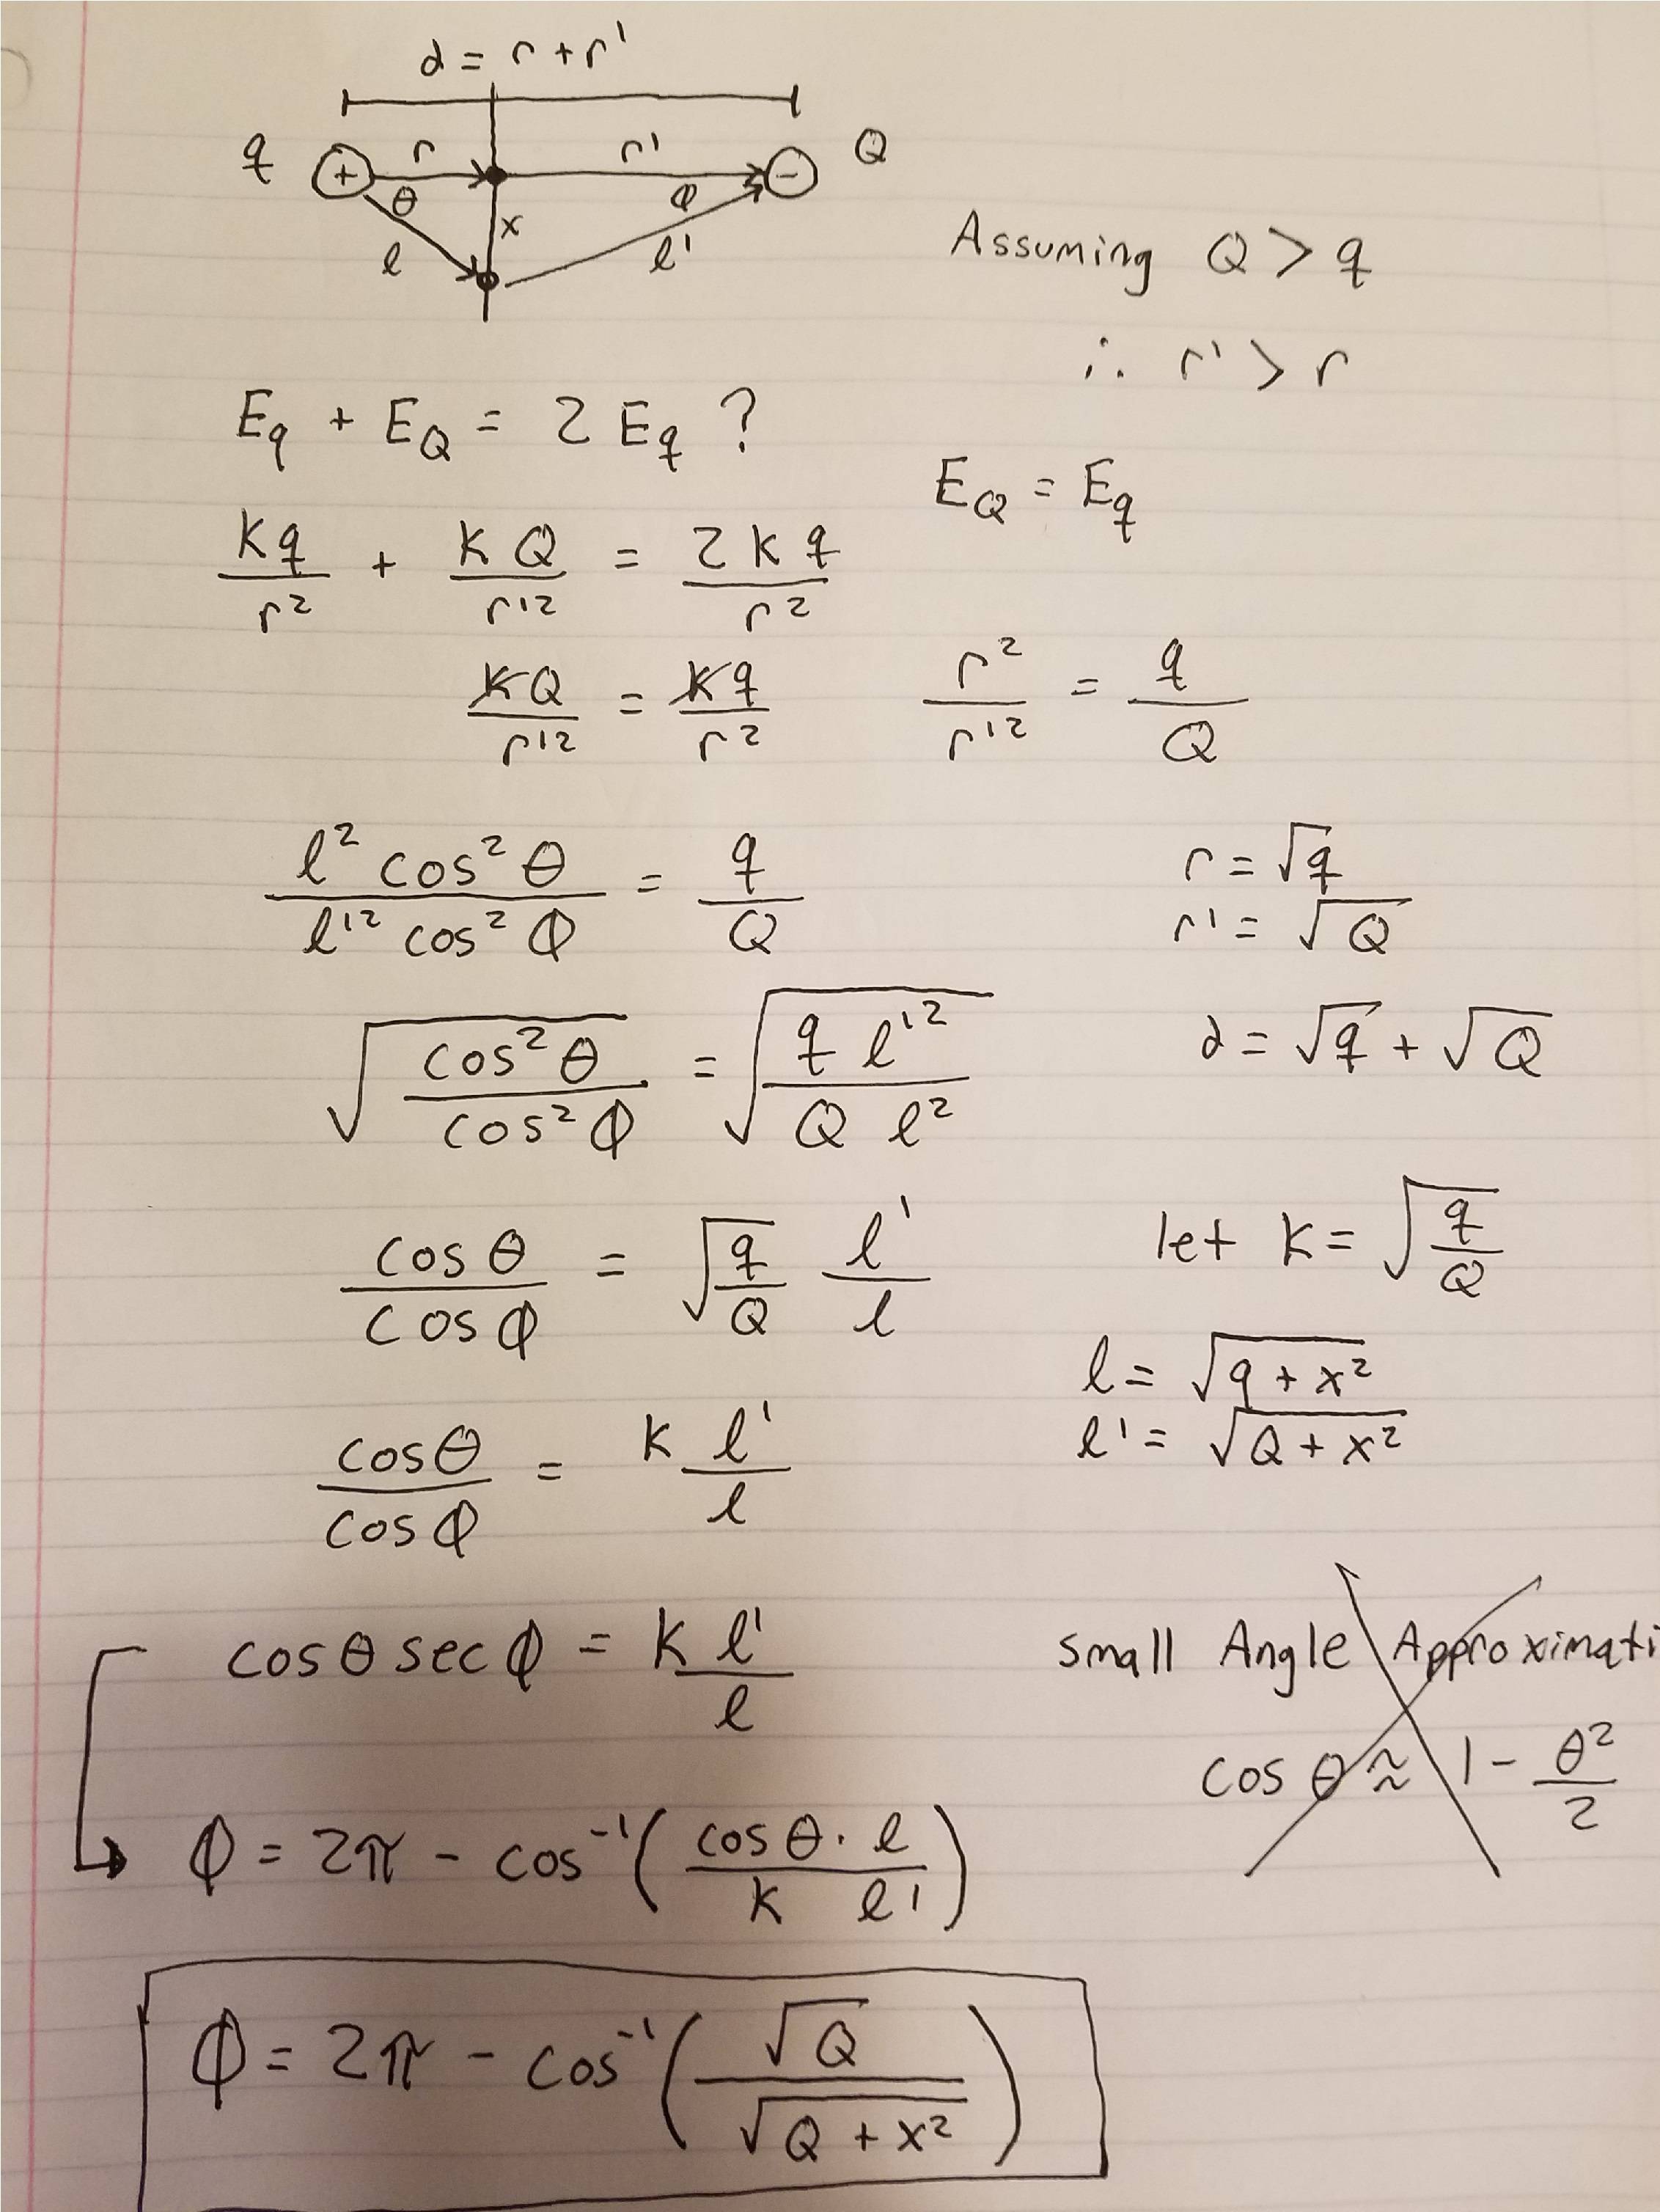 d = r + r'
q + r r' - Q
θ φ
x
l l'
Assuming Q > q
∴ r' > r
E_q + E_Q = 2 E_q ?
E_Q = E_q
kq/r² + kQ/r'² = 2kq/r²
kQ/r'² = kq/r²
r²/r'² = q/Q
l² cos² θ / l'² cos² φ = q/Q
r = √q
r' = √Q
√(cos² θ / cos² φ) = √(q l'² / Q l²)
d = √q + √Q
cos θ / cos φ = √(q/Q) l'/l
let k = √(q/Q)
l = √(q + x²)
l' = √(Q + x²)
cos θ / cos φ = k l'/l
cos θ sec φ = k l'/l
Small Angle Approximati
cos θ ≈ 1 - θ²/2
φ = 2π - cos⁻¹(cos θ · l / k l')
φ = 2π - cos⁻¹(√Q / √(Q + x²))